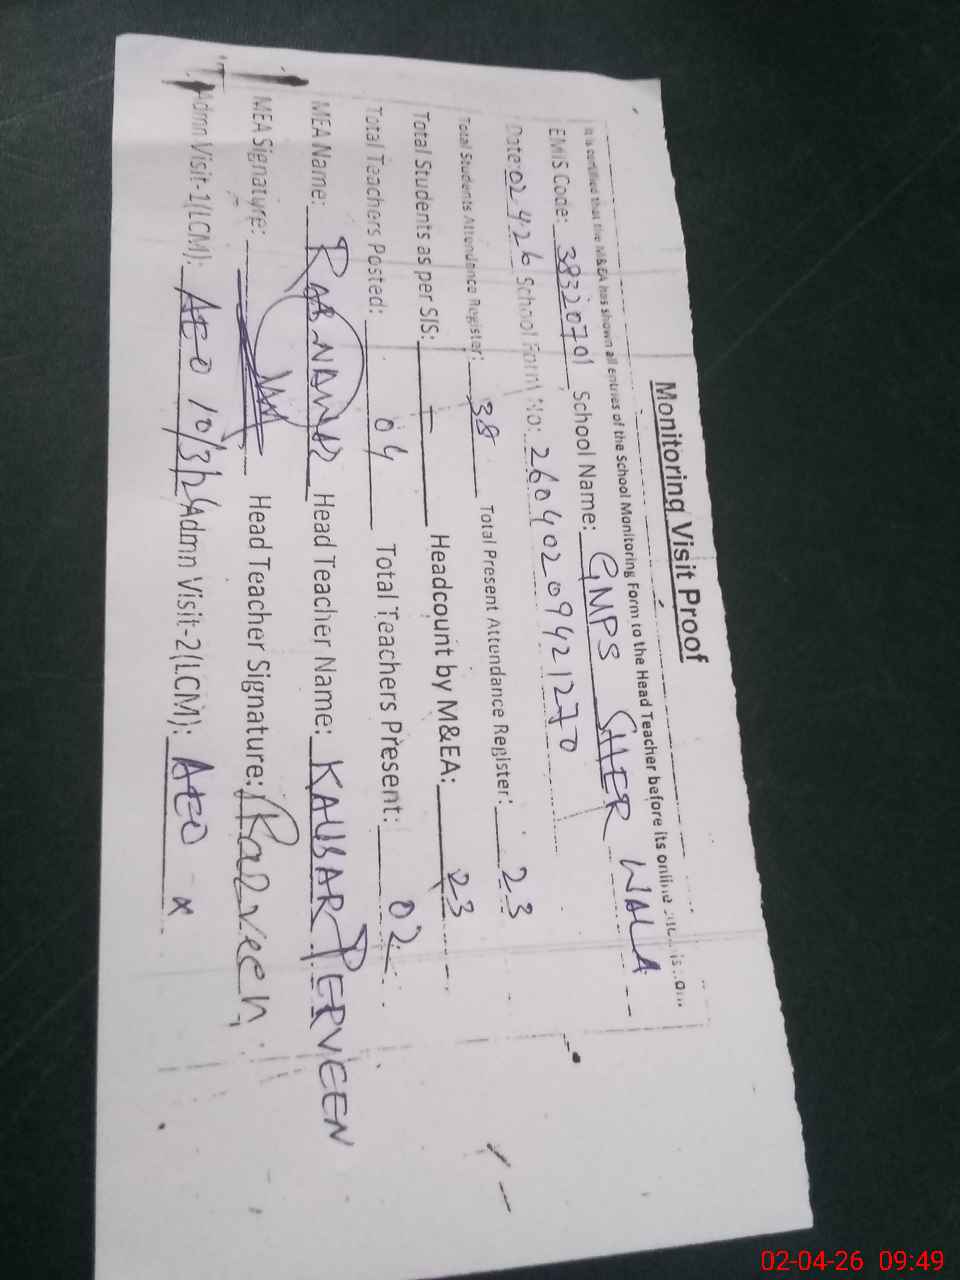 Monitoring Visit Proof
It is certified that the M&EA has shown all entries of the School Monitoring Form to the Head Teacher before its online
EMIS Code: 38320701 School Name: GMPS SHER WALA
Date: 02.4.26 School Form No: 26040209421270
Total Students Attendance Register: 38 Total Present Attendance Register: 23
Total Students as per SIS: — Headcount by M&EA: 23
Total Teachers Posted: 04 Total Teachers Present: 02
MEA Name: Head Teacher Name: KAUSAR PERVEEN
MEA Signature: Head Teacher Signature:
Admn Visit-1(LCM): AEO 10/3/26 Admn Visit-2(LCM): AEO x
02-04-26 09:49